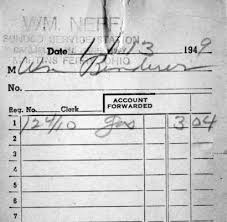 WM. NEFF
SUNOCO SERVICE STATION
MARTINS FERRY, OHIO
Date 13 1949
M Wm
No.
Reg. No. Clerk ACCOUNT FORWARDED
1 12410 gas 3 04
2
3
4
5
6